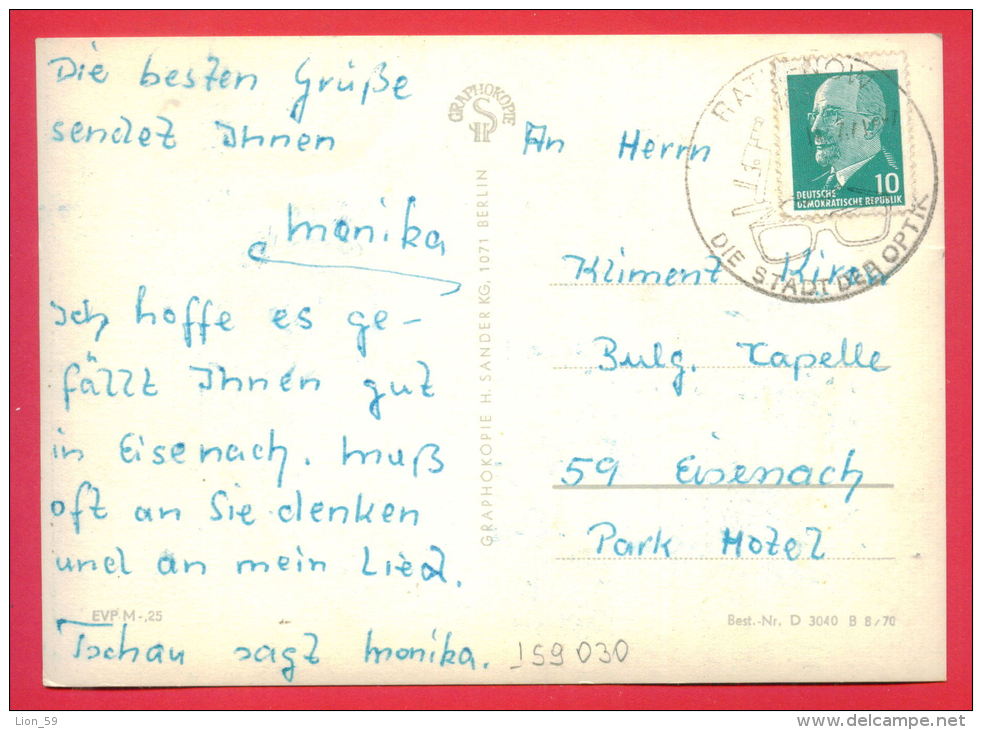 Die besten Grüße
sendet Ihnen
Monika
Ich hoffe es ge-
fällt Ihnen gut
in Eisenach. Muß
oft an Sie denken
und an mein Lied.
EVP M -,25
Tschau sagt Monika.
159030
GRAPHOKOPIE
HS
GRAPHOKOPIE H. SANDER KG, 1071 BERLIN
DIE STADT DER OPTIK
10
DEUTSCHE
DEMOKRATISCHE REPUBLIK
An Herrn
Kliment
Bulg. Kapelle
59 Eisenach
Park Hotel
Best.-Nr. D 3040 B 8/70
Lion_59
www.delcampe.net